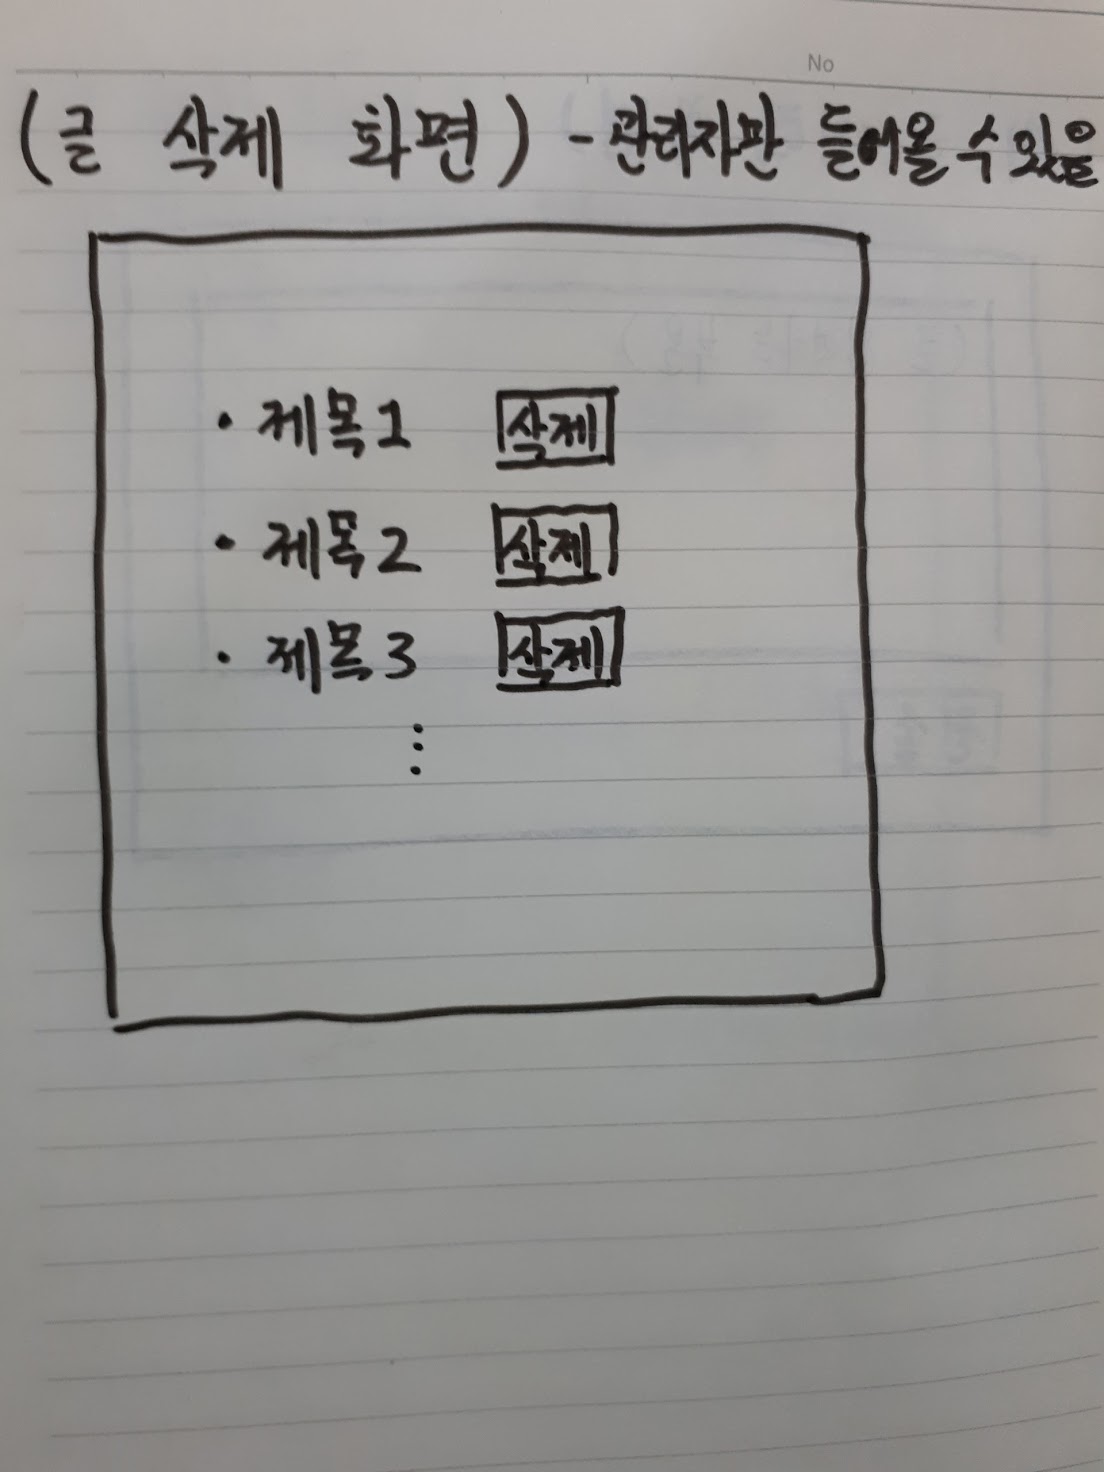 No
(글 삭제 화면) - 관리자만 들어올 수 있음
· 제목1 삭제
· 제목2 삭제
· 제목3 삭제
⋮